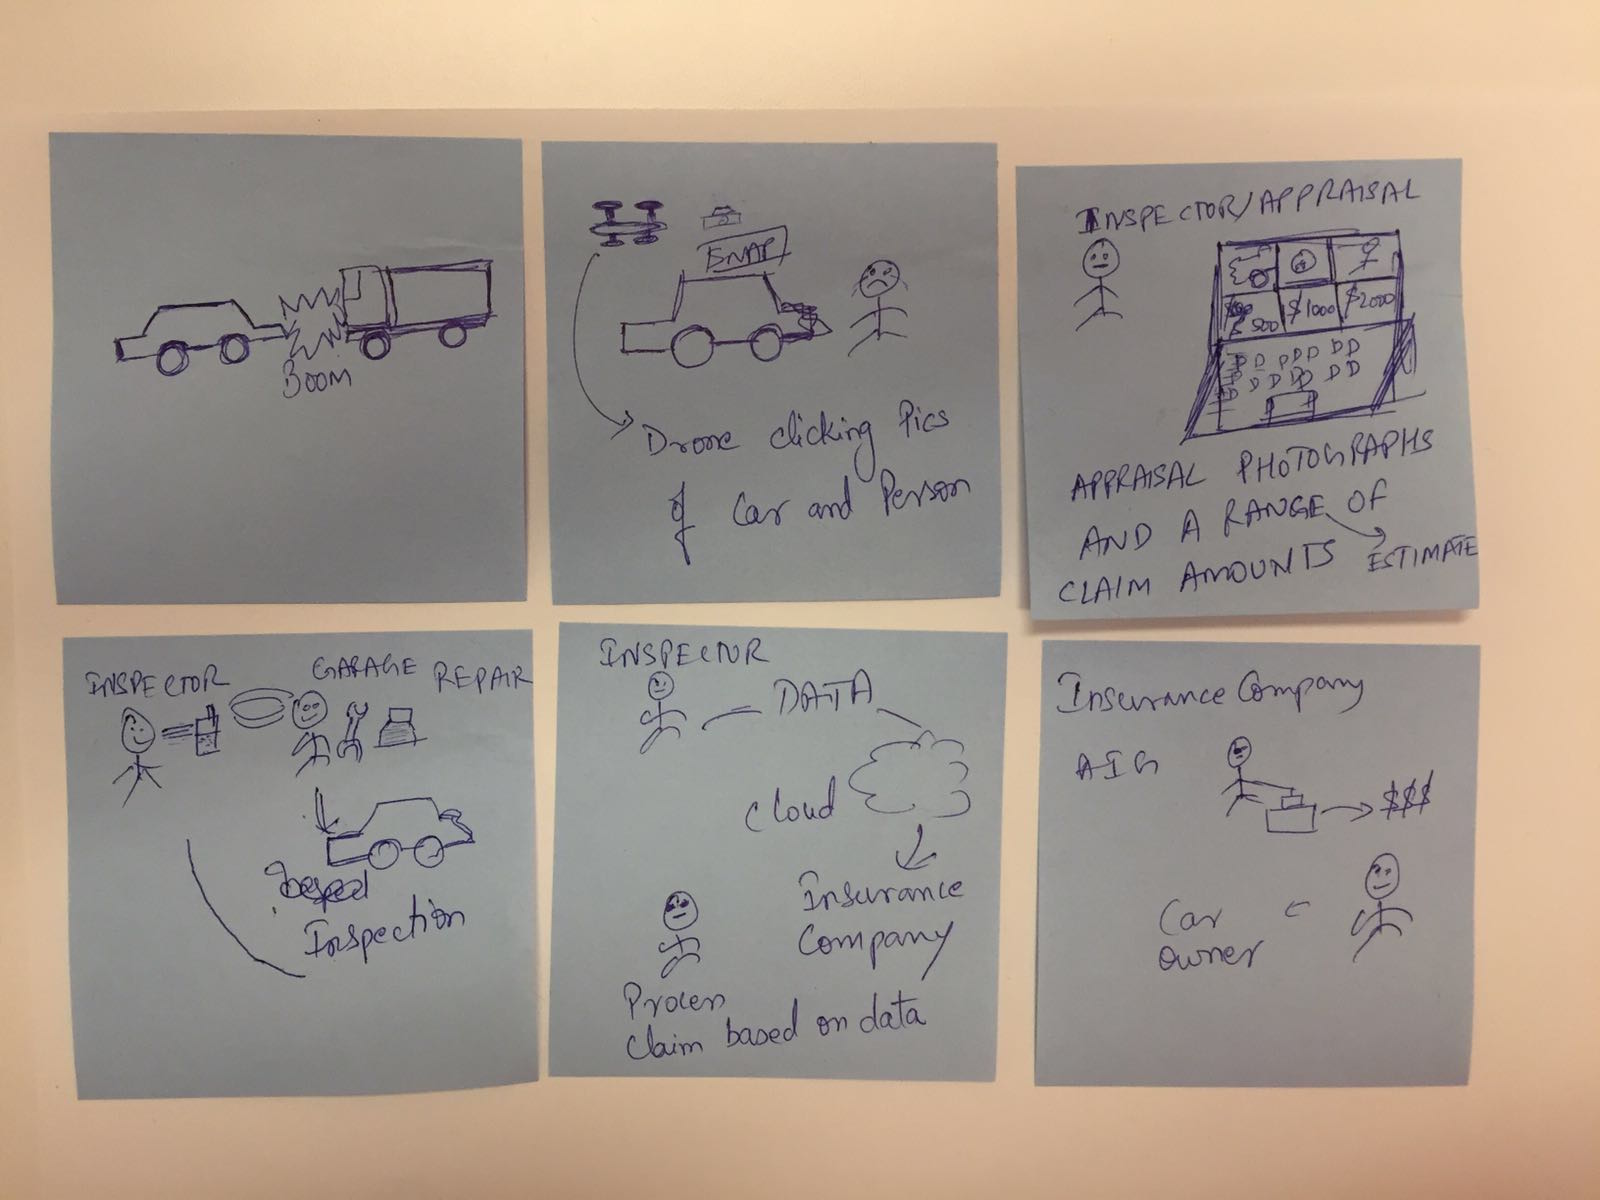 BOOM
SNAP
Drone clicking Pics
of Car and Person
INSPECTOR/APPRAISAL
$500 $1000 $2000
D D D D D D D
D D D D D D D
APPRAISAL PHOTOGRAPHS
AND A RANGE OF
CLAIM AMOUNTS ESTIMATE
INSPECTOR GARAGE REPAIR
Inspection
INSPECTOR
DATA
Cloud
Insurance
Company
Proces
Claim based on data
Insurance Company
AIG
$$$
Car
owner